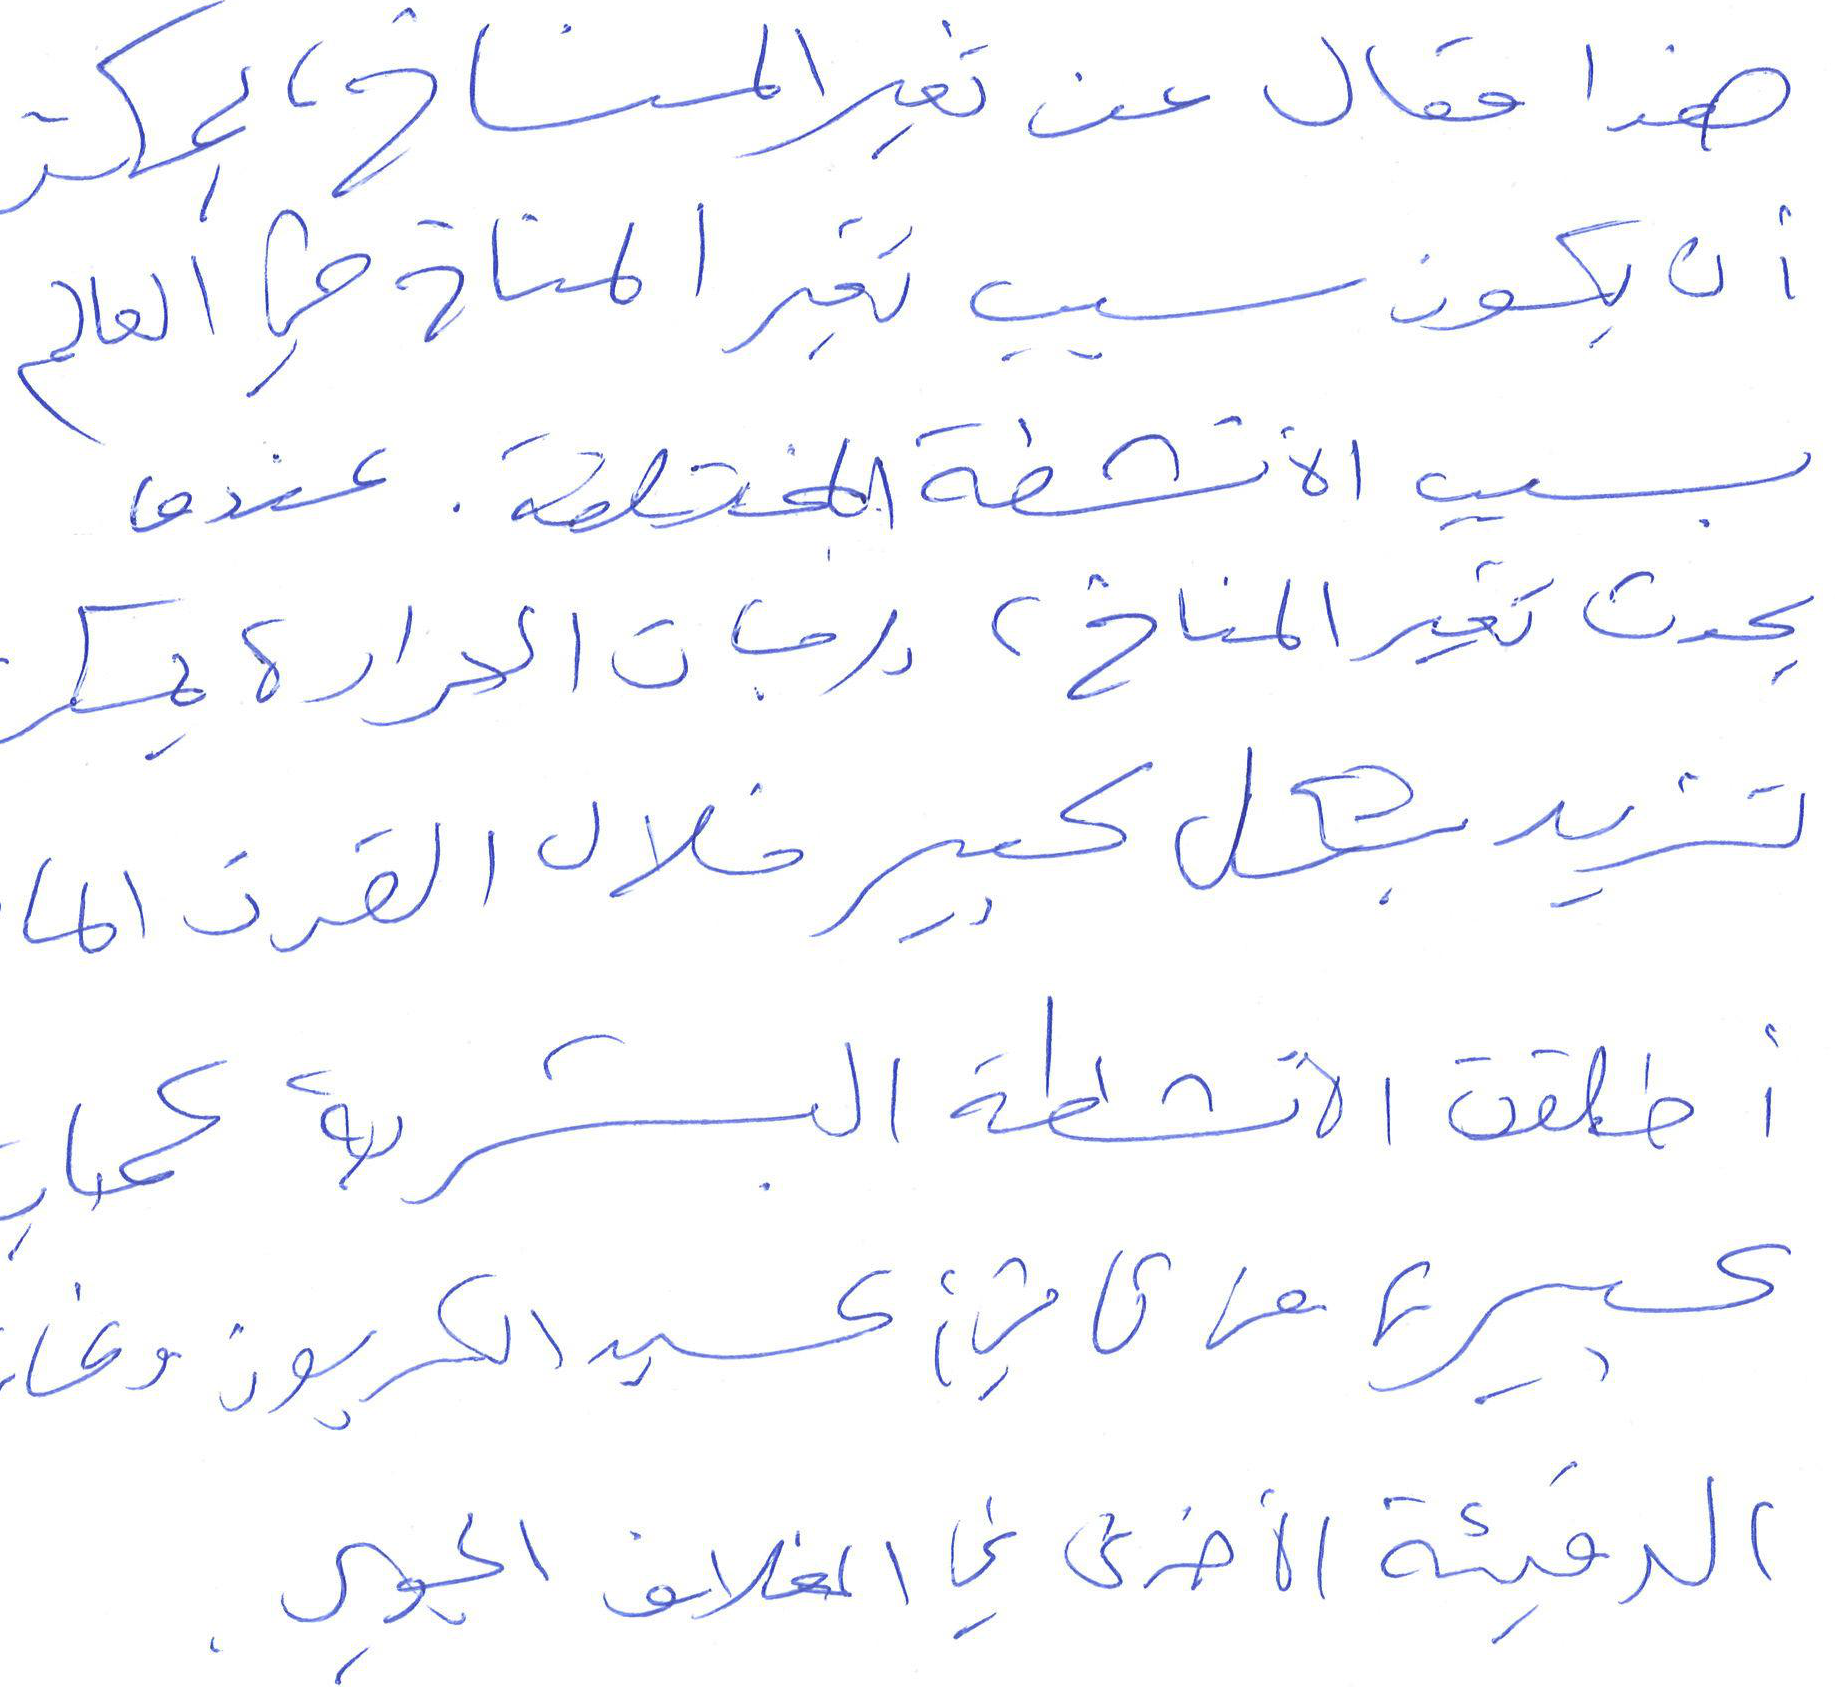 هذا مقال عن تغير المناخ، يمكن
أن يكون سبب تغير المناخ في العالم
بسبب الأنشطة المختلفة. عندما
يحدث تغير المناخ، درجات الحرارة يمكن
تزيد بشكل كبير خلال القرن الما
أطلقت الأنشطة البشرية كميات
كبيرة من ثاني أكسيد الكربون وغاز
الدفيئة الأخرى في الغلاف الجوي.